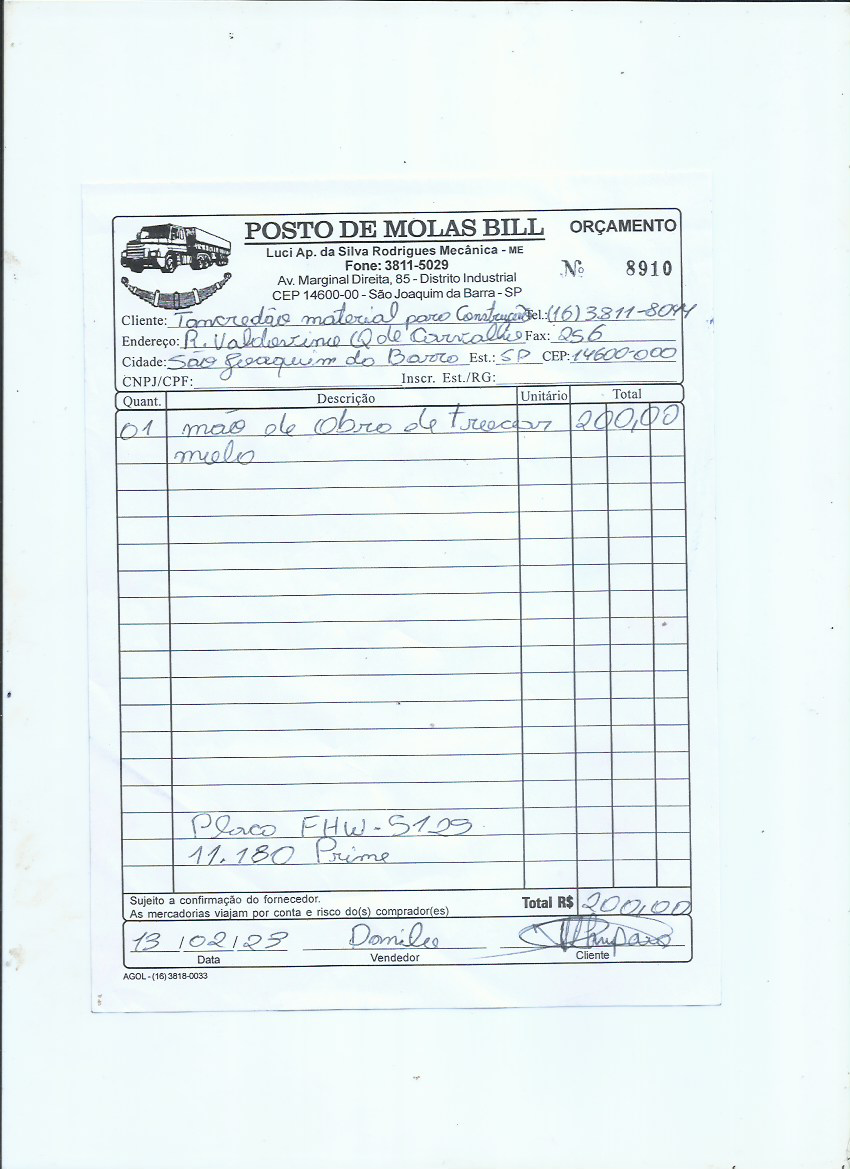 POSTO DE MOLAS BILL ORÇAMENTO
Luci Ap. da Silva Rodrigues Mecânica - ME
Fone: 3811-5029
Nº 8910
Av. Marginal Direita, 85 - Distrito Industrial
CEP 14600-00 - São Joaquim da Barra - SP
Cliente: Tancredão material para Construção Tel.: (16) 3811-8044
Endereço: R. Valdevino Q de Carvalho Fax: 256
Cidade: São Joaquim da Barra Est.: SP CEP: 14600-000
CNPJ/CPF: Inscr. Est./RG:
Quant. Descrição Unitário Total
01 mão de Obra de trocar 200,00
mola
Placa FHW-5129
11.180 Prime
Sujeito a confirmação do fornecedor.
As mercadorias viajam por conta e risco do(s) comprador(es)
Total R$ 200,00
13 / 02 / 23 Danilo
Data Vendedor Cliente
AGOL - (16) 3818-0033